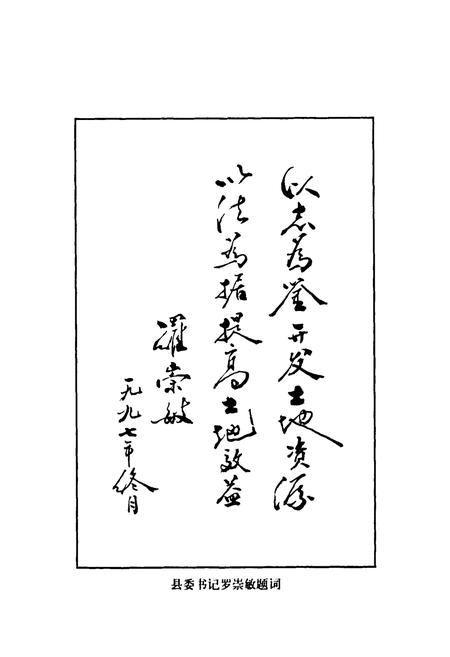 以志为鉴开发土地资源
以法为据提高土地效益
罗崇敏
一九九七年终月
县委书记罗崇敏题词